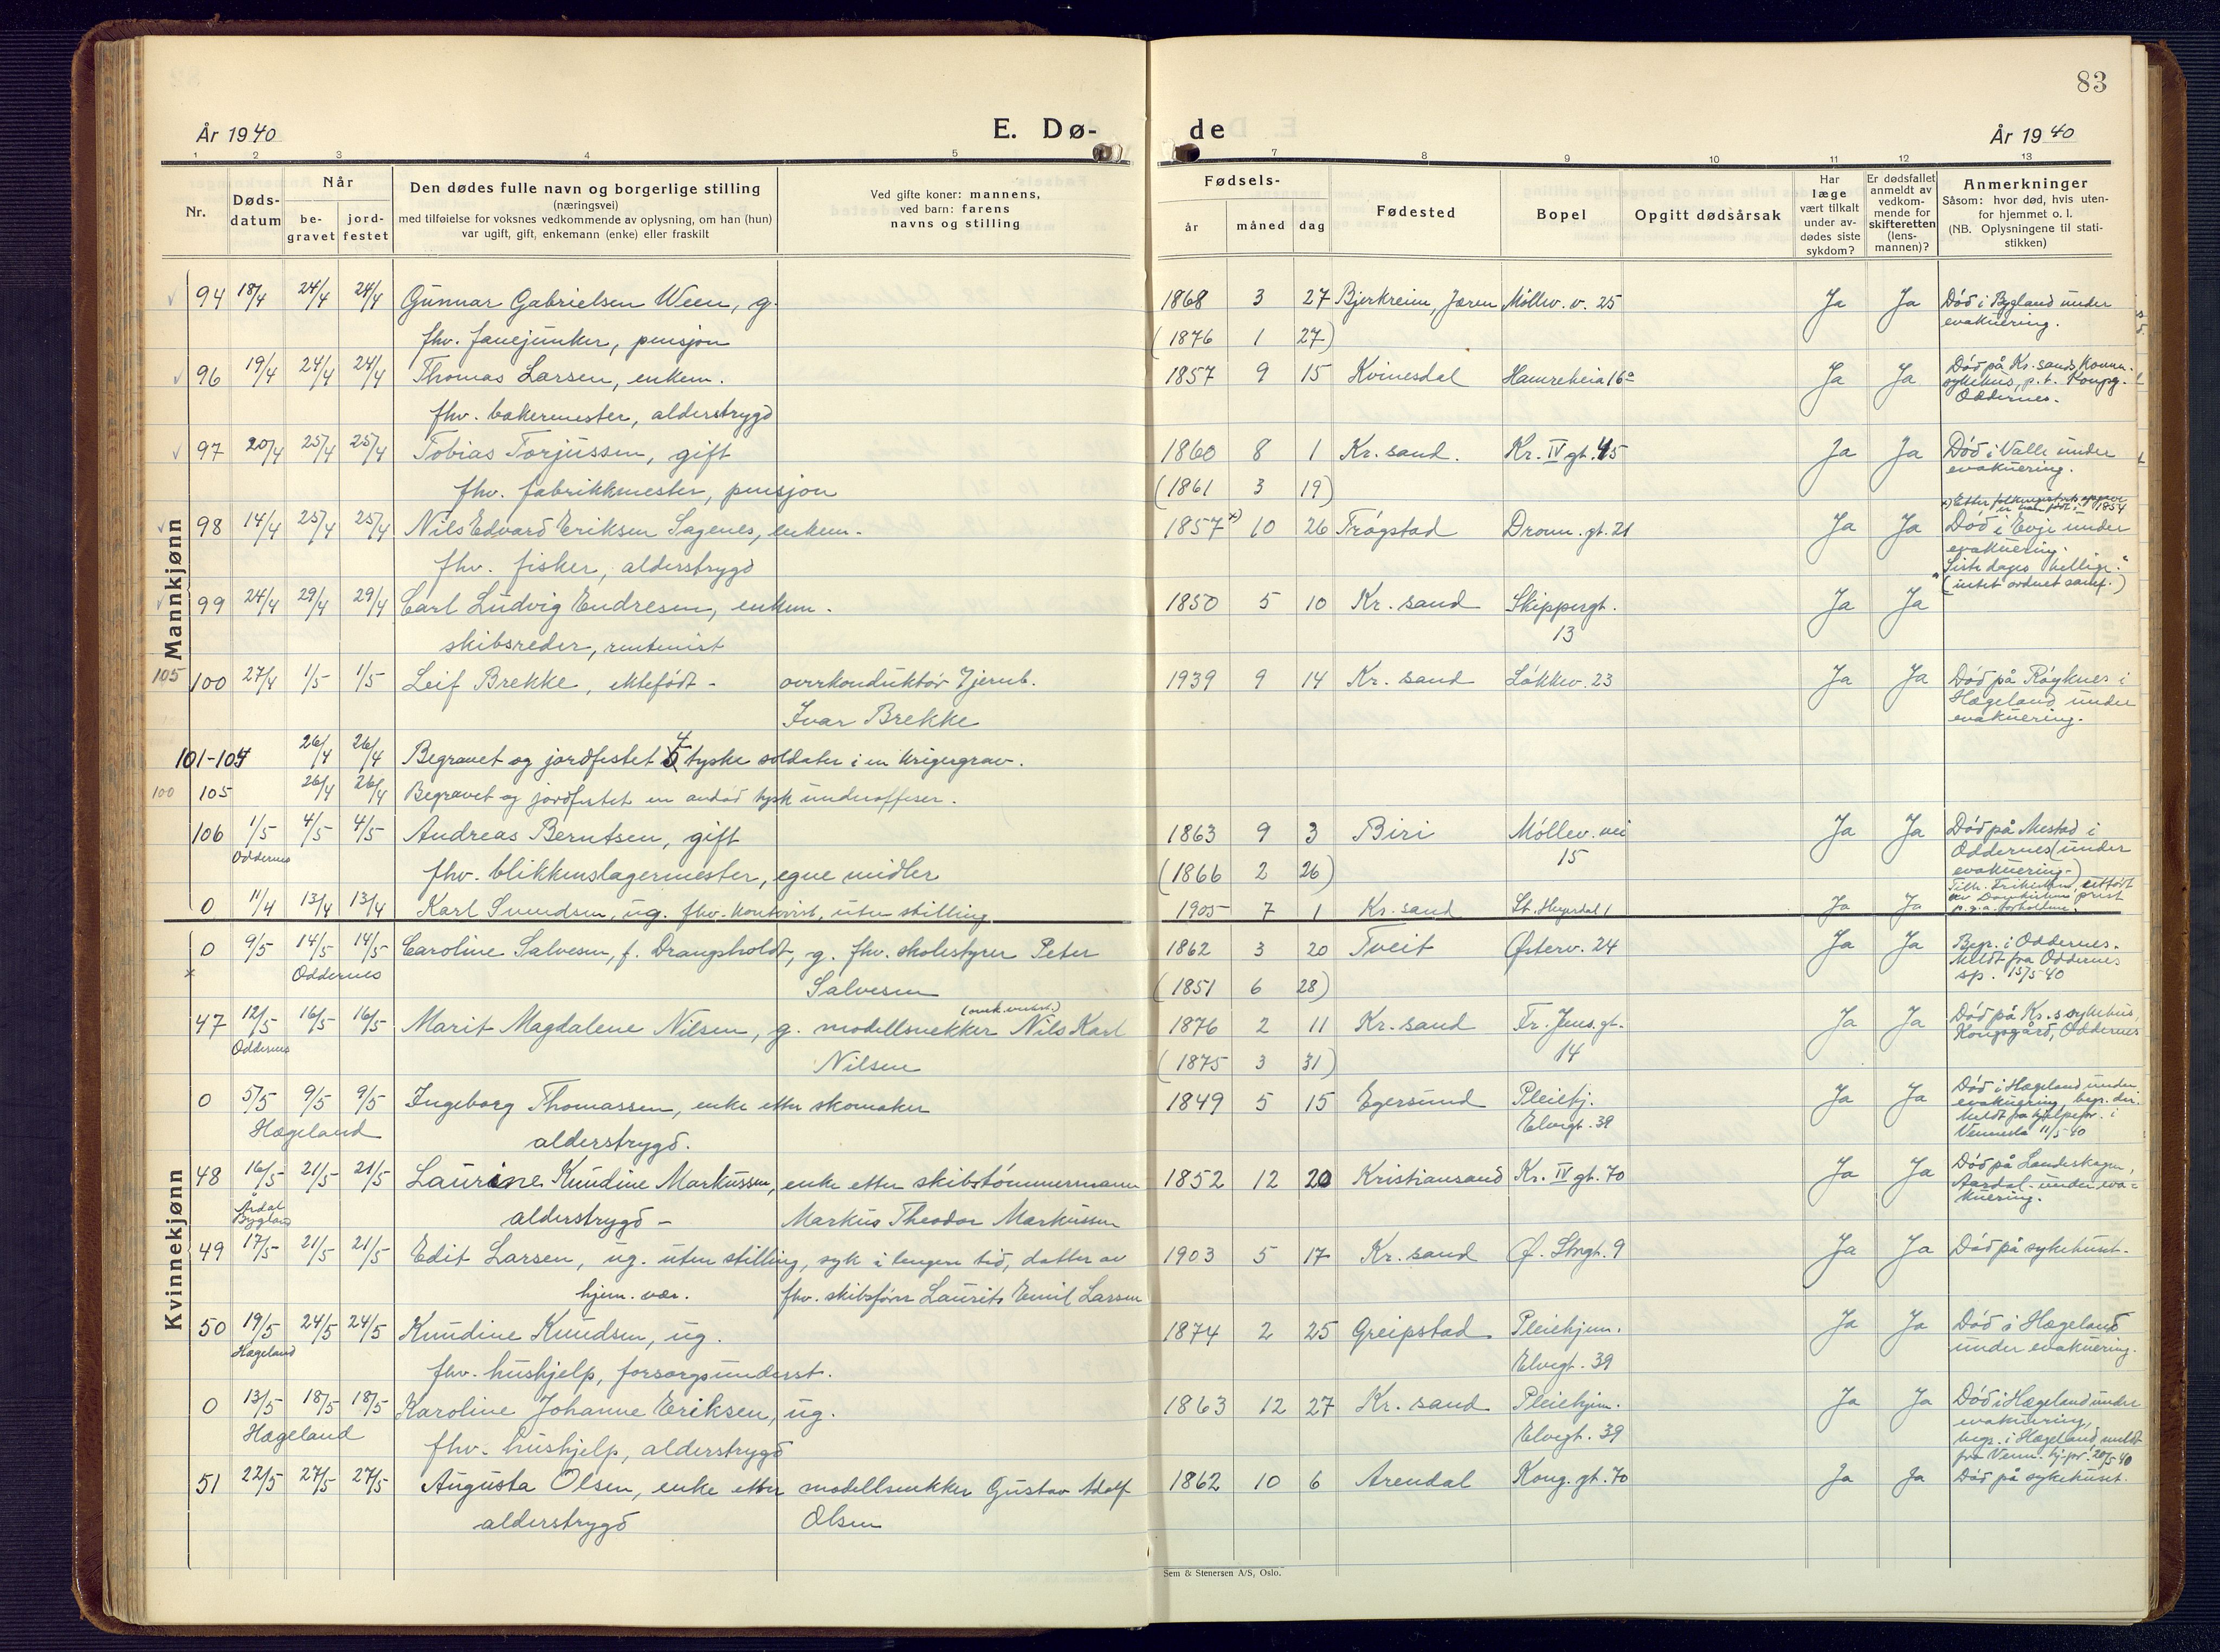 83
År 1940 E. Dø- de År 1940
1 2 3 4 5 7 8 9 10 11 12 13
Nr.
Døds-
datum
Når
be-
gravet
jord-
festet
Den dødes fulle navn og borgerlige stilling
(næringsvei)
med tilføielse for voksnes vedkommende av oplysning, om han (hun)
var ugift, gift, enkemann (enke) eller fraskilt
Ved gifte koner: mannens,
ved barn: farens
navns og stilling
Fødsels-
år måned dag
Fødested
Bopel
Opgitt dødsårsak
Har
læge
vært tilkalt
under av-
dødes siste
sykdom?
Er dødsfallet
anmeldt av
vedkom-
mende for
skifteretten
(lens-
mannen)?
Anmerkninger
Såsom: hvor død, hvis uten-
for hjemmet o. l.
(NB. Oplysningene til stati-
stikken)
Mannkjønn
94 18/4 24/4 24/4 Gunnar Gabrielsen Ween, g. 1868 3 27 Bjerkreim, Jæren Möllev. v. 25 Ja Ja Död i Bygland under
evakuering.
fhv. fanejunker, pensjon (1876 1 27)
96 19/4 24/4 24/4 Thomas Larsen, enkem. 1857 9 15 Kvinesdal Hamreheia 16a Ja Ja Död på Kr.sands Komm.
sykehus, p.t. Kongsg.
Oddernes.
fhv. bakermester, alderstrygd
97 20/4 25/4 25/4 Tobias Torjussen, gift 1860 8 1 Kr. sand. Kr. IV gt. 45 Ja Ja Död i Valle under
evakuering.
fhv. fabrikkmester, pensjon (1861 3 19)
98 14/4 25/4 25/4 Nils Edvard Eriksen Sagenes, enkem. 1857 x) 10 26 Trögstad Dronn. gt. 21 Ja Ja Död i Evje under
evakuering.
"Siste dages hellige."
(intet ordnet samf.)
fhv. fisker, alderstrygd
99 24/4 29/4 29/4 Carl Ludvig Endresen, enkem. 1850 5 10 Kr. sand Skippergt. Ja Ja
skibsreder, rentenist 13
105 100 27/4 1/5 1/5 Leif Brekke, ektefödt - overkonduktör Jernb. 1939 9 14 Kr. sand Lökkev. 23 Ja Ja Död på Röyknes i
Hægeland under
evakuering.
Ivar Brekke
101-104 26/4 26/4 Begravet og jordfestet 4 tyske soldater i en krigergrav.
100 105 26/4 26/4 Begravet og jordfestet en avdöd tysk underoffiser.
106 1/5 4/5 4/5 Andreas Berntsen, gift 1863 9 3 Biri Möllev. vei Ja Ja Död på Mestad i
Oddernes (under
evakuering.)
Oddernes fhv. blikkenslagermester, egne midler (1866 2 26) 15
0 11/4 13/4 13/4 Karl Svendsen, ug. fhv. kontorist, uten stilling 1905 7 1 Kr. sand Ja Ja
Kvinnekjønn
0 9/5 14/5 14/5 Caroline Salvesen, f. Drangsholdt, g. fhv. skolestyrer Peter 1862 3 20 Tveit Østerv. 24 Ja Ja Begr. i Oddernes.
Meldt fra Oddernes
sp. 15/5-40
x Oddernes Salvesen (1851 6 28)
47 12/5 16/5 16/5 Marit Magdalene Nilsen, g. modellsnekker Nils Karl 1876 2 11 Kr. sand Fr. Jens.gt. Ja Ja Död på Kr.s sykehus,
Kongsgård, Oddernes
Oddernes Nilsen (1875 3 31) 14
0 5/5 9/5 9/5 Ingeborg Thomassen, enke etter skomaker 1849 5 15 Egersund Pleiehj. Ja Ja Död i Hægeland under
evakuering, begr. der.
Meldt fra hjelpepr. i
Vennesla 11/5-40
Hægeland alderstrygd. Elvegt. 39
48 16/5 21/5 21/5 Laurine Kundine Markussen, enke etter skibstömmermann 1852 12 20 Kristiansand Kr. IV gt. 70 Ja Ja Död på Landeskogen,
Aardal - under eva-
kuering.
Årdal
Bygland alderstrygd - Markus Theodor Markussen
49 17/5 21/5 21/5 Edit Larsen, ug. uten stilling, syk i lengere tid, datter av 1903 5 17 Kr. sand Ø. Strgt. 9 Ja Ja Död på sykehuset.
hjem. vær. fhv. skibsförer Laurits Emil Larsen
50 19/5 24/5 24/5 Kundine Knudsen, ug. 1874 2 25 Greipstad Pleiehjem. Ja Ja Död i Hægeland
under evakuering.
Hægeland fhv. hushjelp, forsorgsunderst. Elvegt. 39
0 13/5 18/5 18/5 Karoline Johanne Eriksen, ug. 1863 12 27 Kr. sand Pleiehjem. Ja Ja Död i Hægeland under
evakuering,
begr. i Hægeland, meldt
fra Venn. hj.pr. 20/5-40
Hægeland fhv. hushjelp, alderstrygd Elvegt. 39
51 22/5 27/5 27/5 Augusta Olsen, enke etter modellsnekker Gustav Adolf 1862 10 6 Arendal Kong. gt. 70 Ja Ja Död på sykehuset.
alderstrygd Olsen
Sem & Stenersen A/S, Oslo.